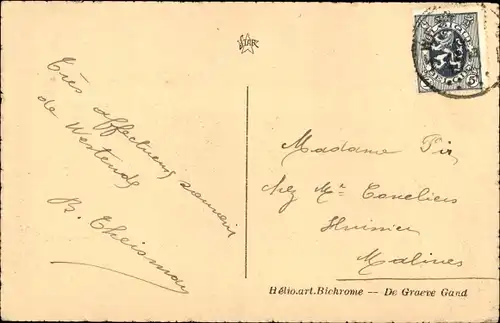 STAR
Très affectueux souvenir
de Westende
B.
Madame Pir
chez Mr
Huissier
Malines
Hélio.art.Bichrome — De Graeve Gand